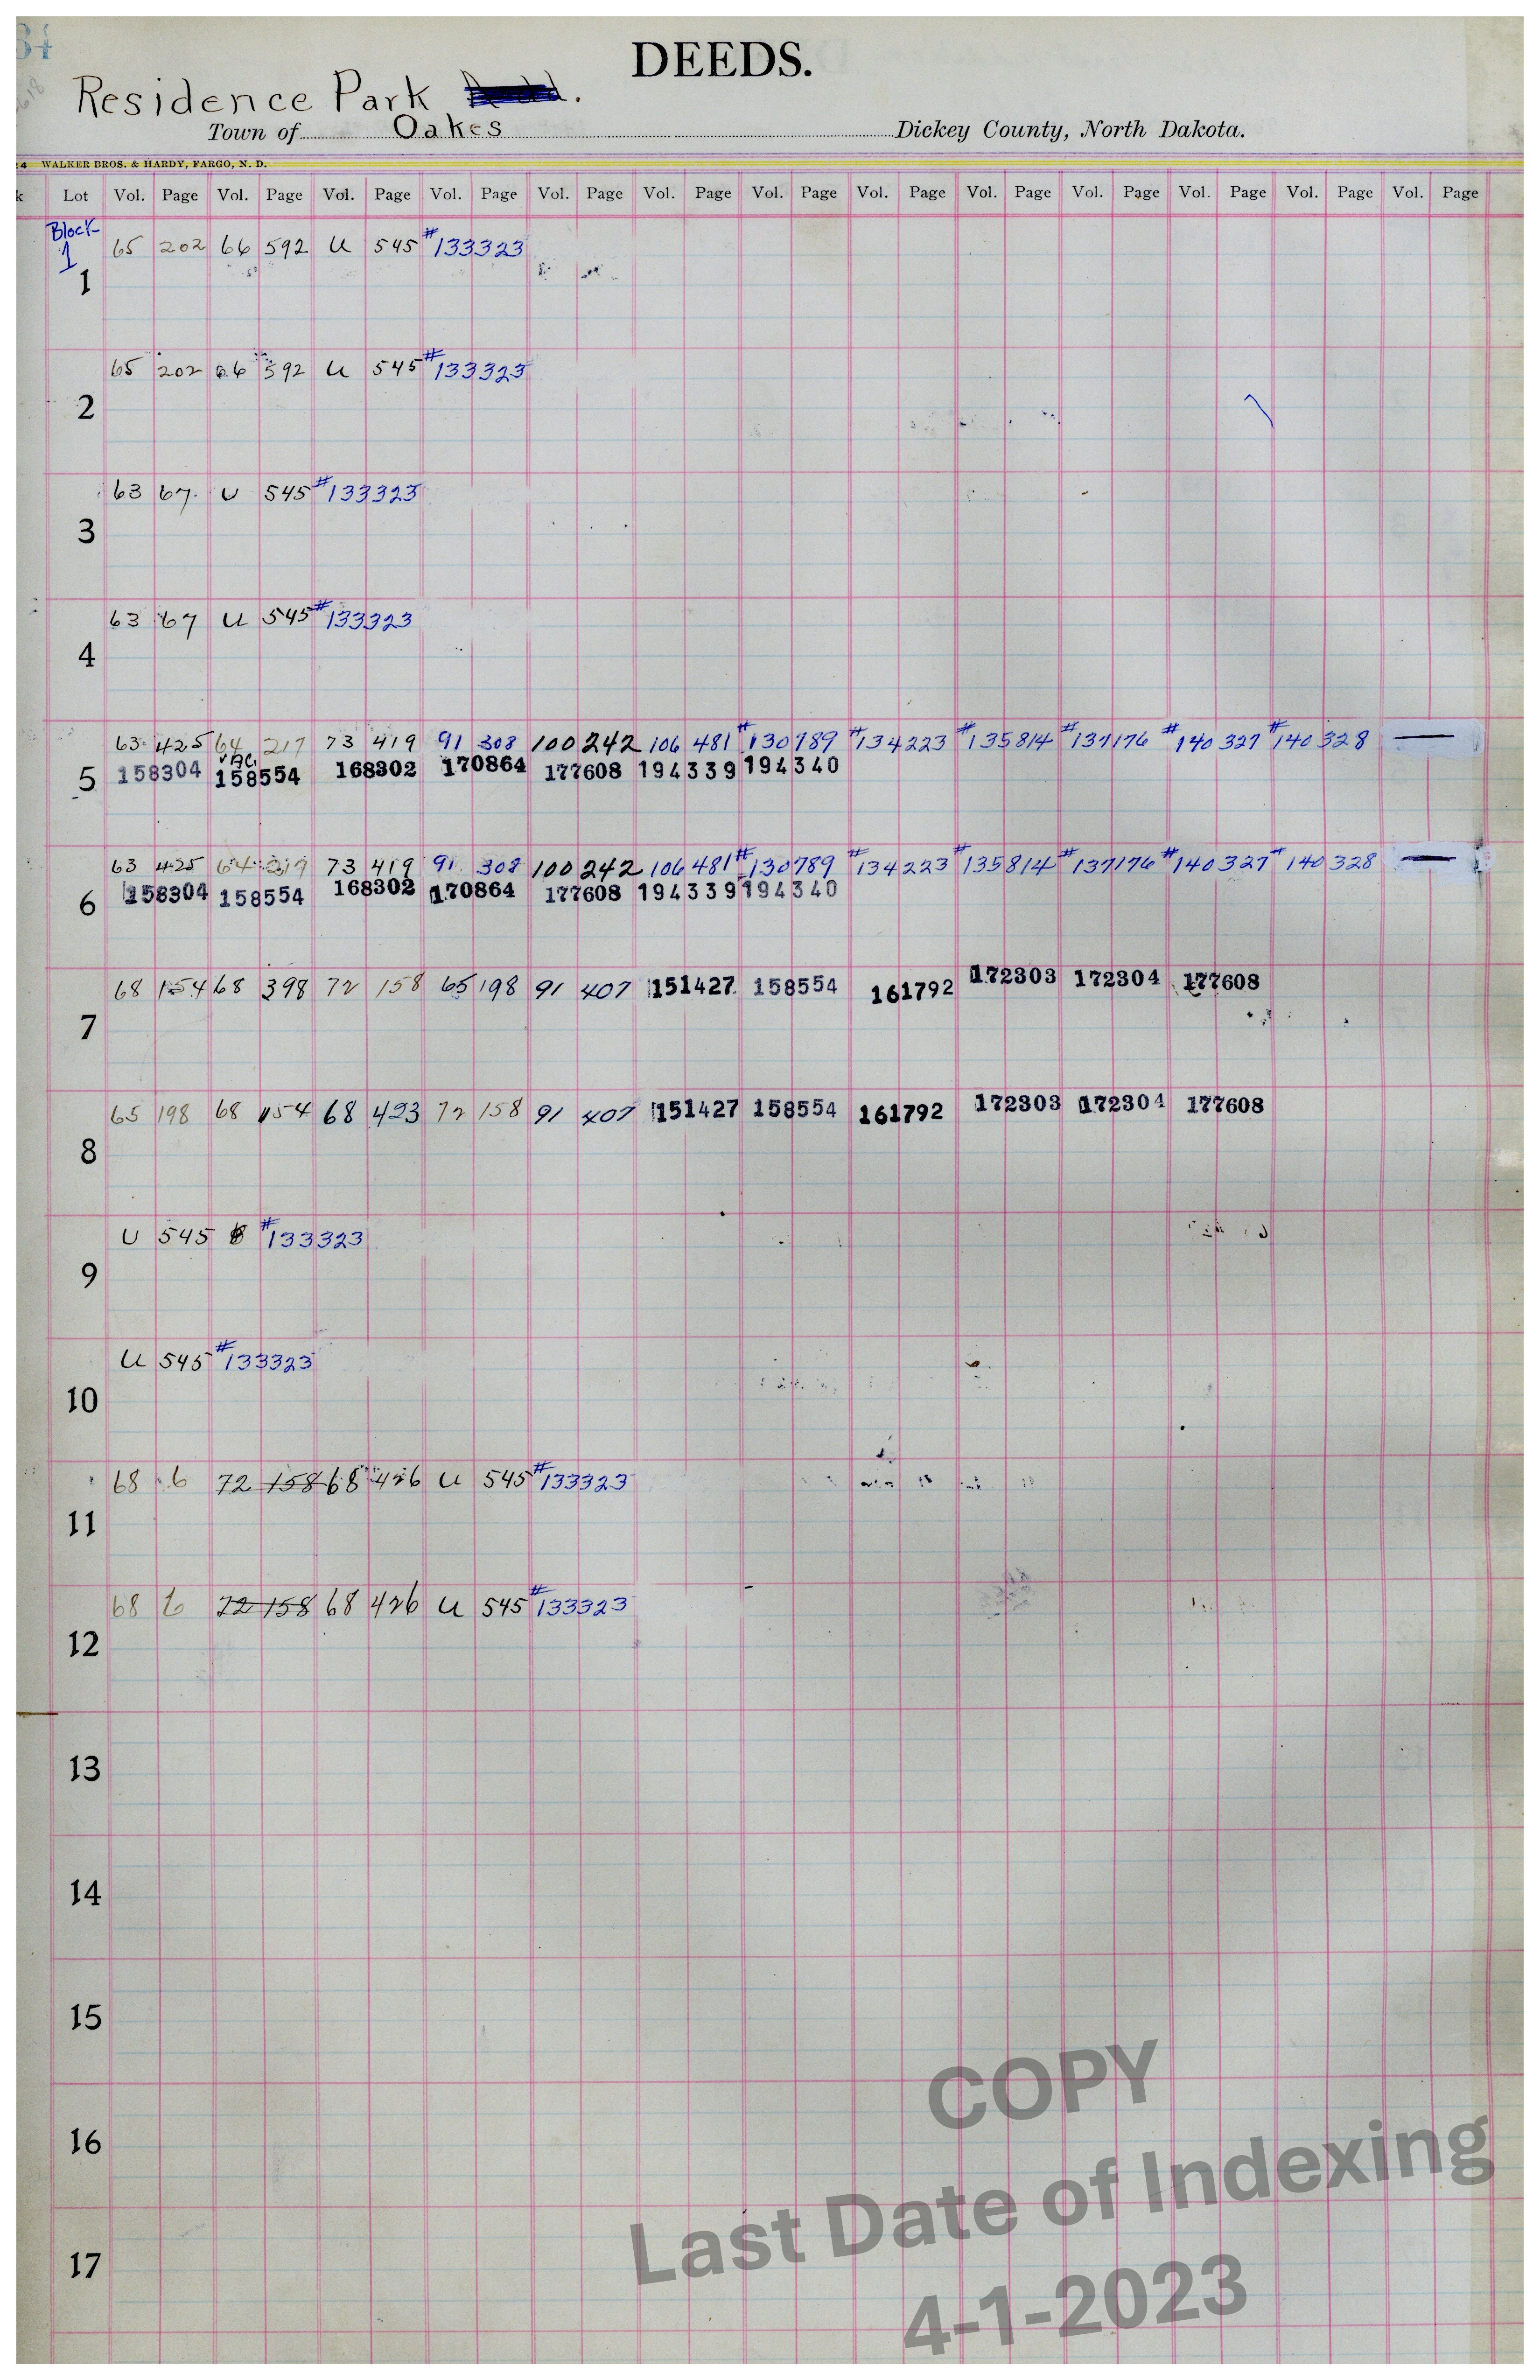 DEEDS.
Residence Park
Town of Oakes Dickey County, North Dakota.
WALKER BROS. & HARDY, FARGO, N. D.
Lot Vol. Page Vol. Page Vol. Page Vol. Page Vol. Page Vol. Page Vol. Page Vol. Page Vol. Page Vol. Page Vol. Page Vol. Page Vol. Page
Block
1
65 202 66 592 U 545 #133323
1
65 202 66 592 U 545 #133323
2
63 67 U 545 #133323
3
63 67 U 545 #133323
4
63 425 64 217 73 419 91 308 100 242 106 481 #130789 #134223 #135814 #137176 #140327 #140328 —
VAC
158304 158554 168302 170864 177608 194339 194340
5
63 425 64 217 73 419 91 308 100 242 106 481 #130789 #134223 #135814 #137176 #140327 #140328 —
158304 158554 168302 170864 177608 194339 194340
6
68 154 68 398 72 158 65 198 91 407 151427 158554 161792 172303 172304 177608
7
65 198 68 154 68 423 72 158 91 407 151427 158554 161792 172303 172304 177608
8
U 545 #133323
9
U 545 #133323
10
68 6 72 158 68 426 U 545 #133323
11
68 6 72 158 68 426 U 545 #133323
12
13
14
15
16
17
COPY
Last Date of Indexing
4-1-2023